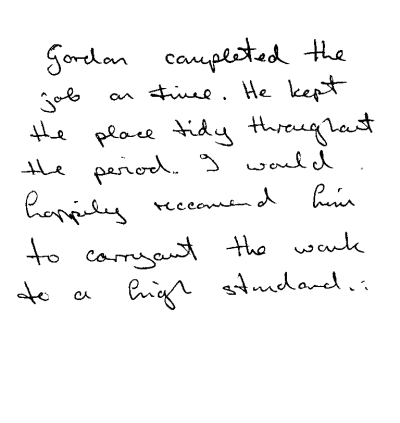 Gordon completed the
job on time. He kept
the place tidy throughout
the period. I would
happily reccomend him
to carryout the work
to a high standard.